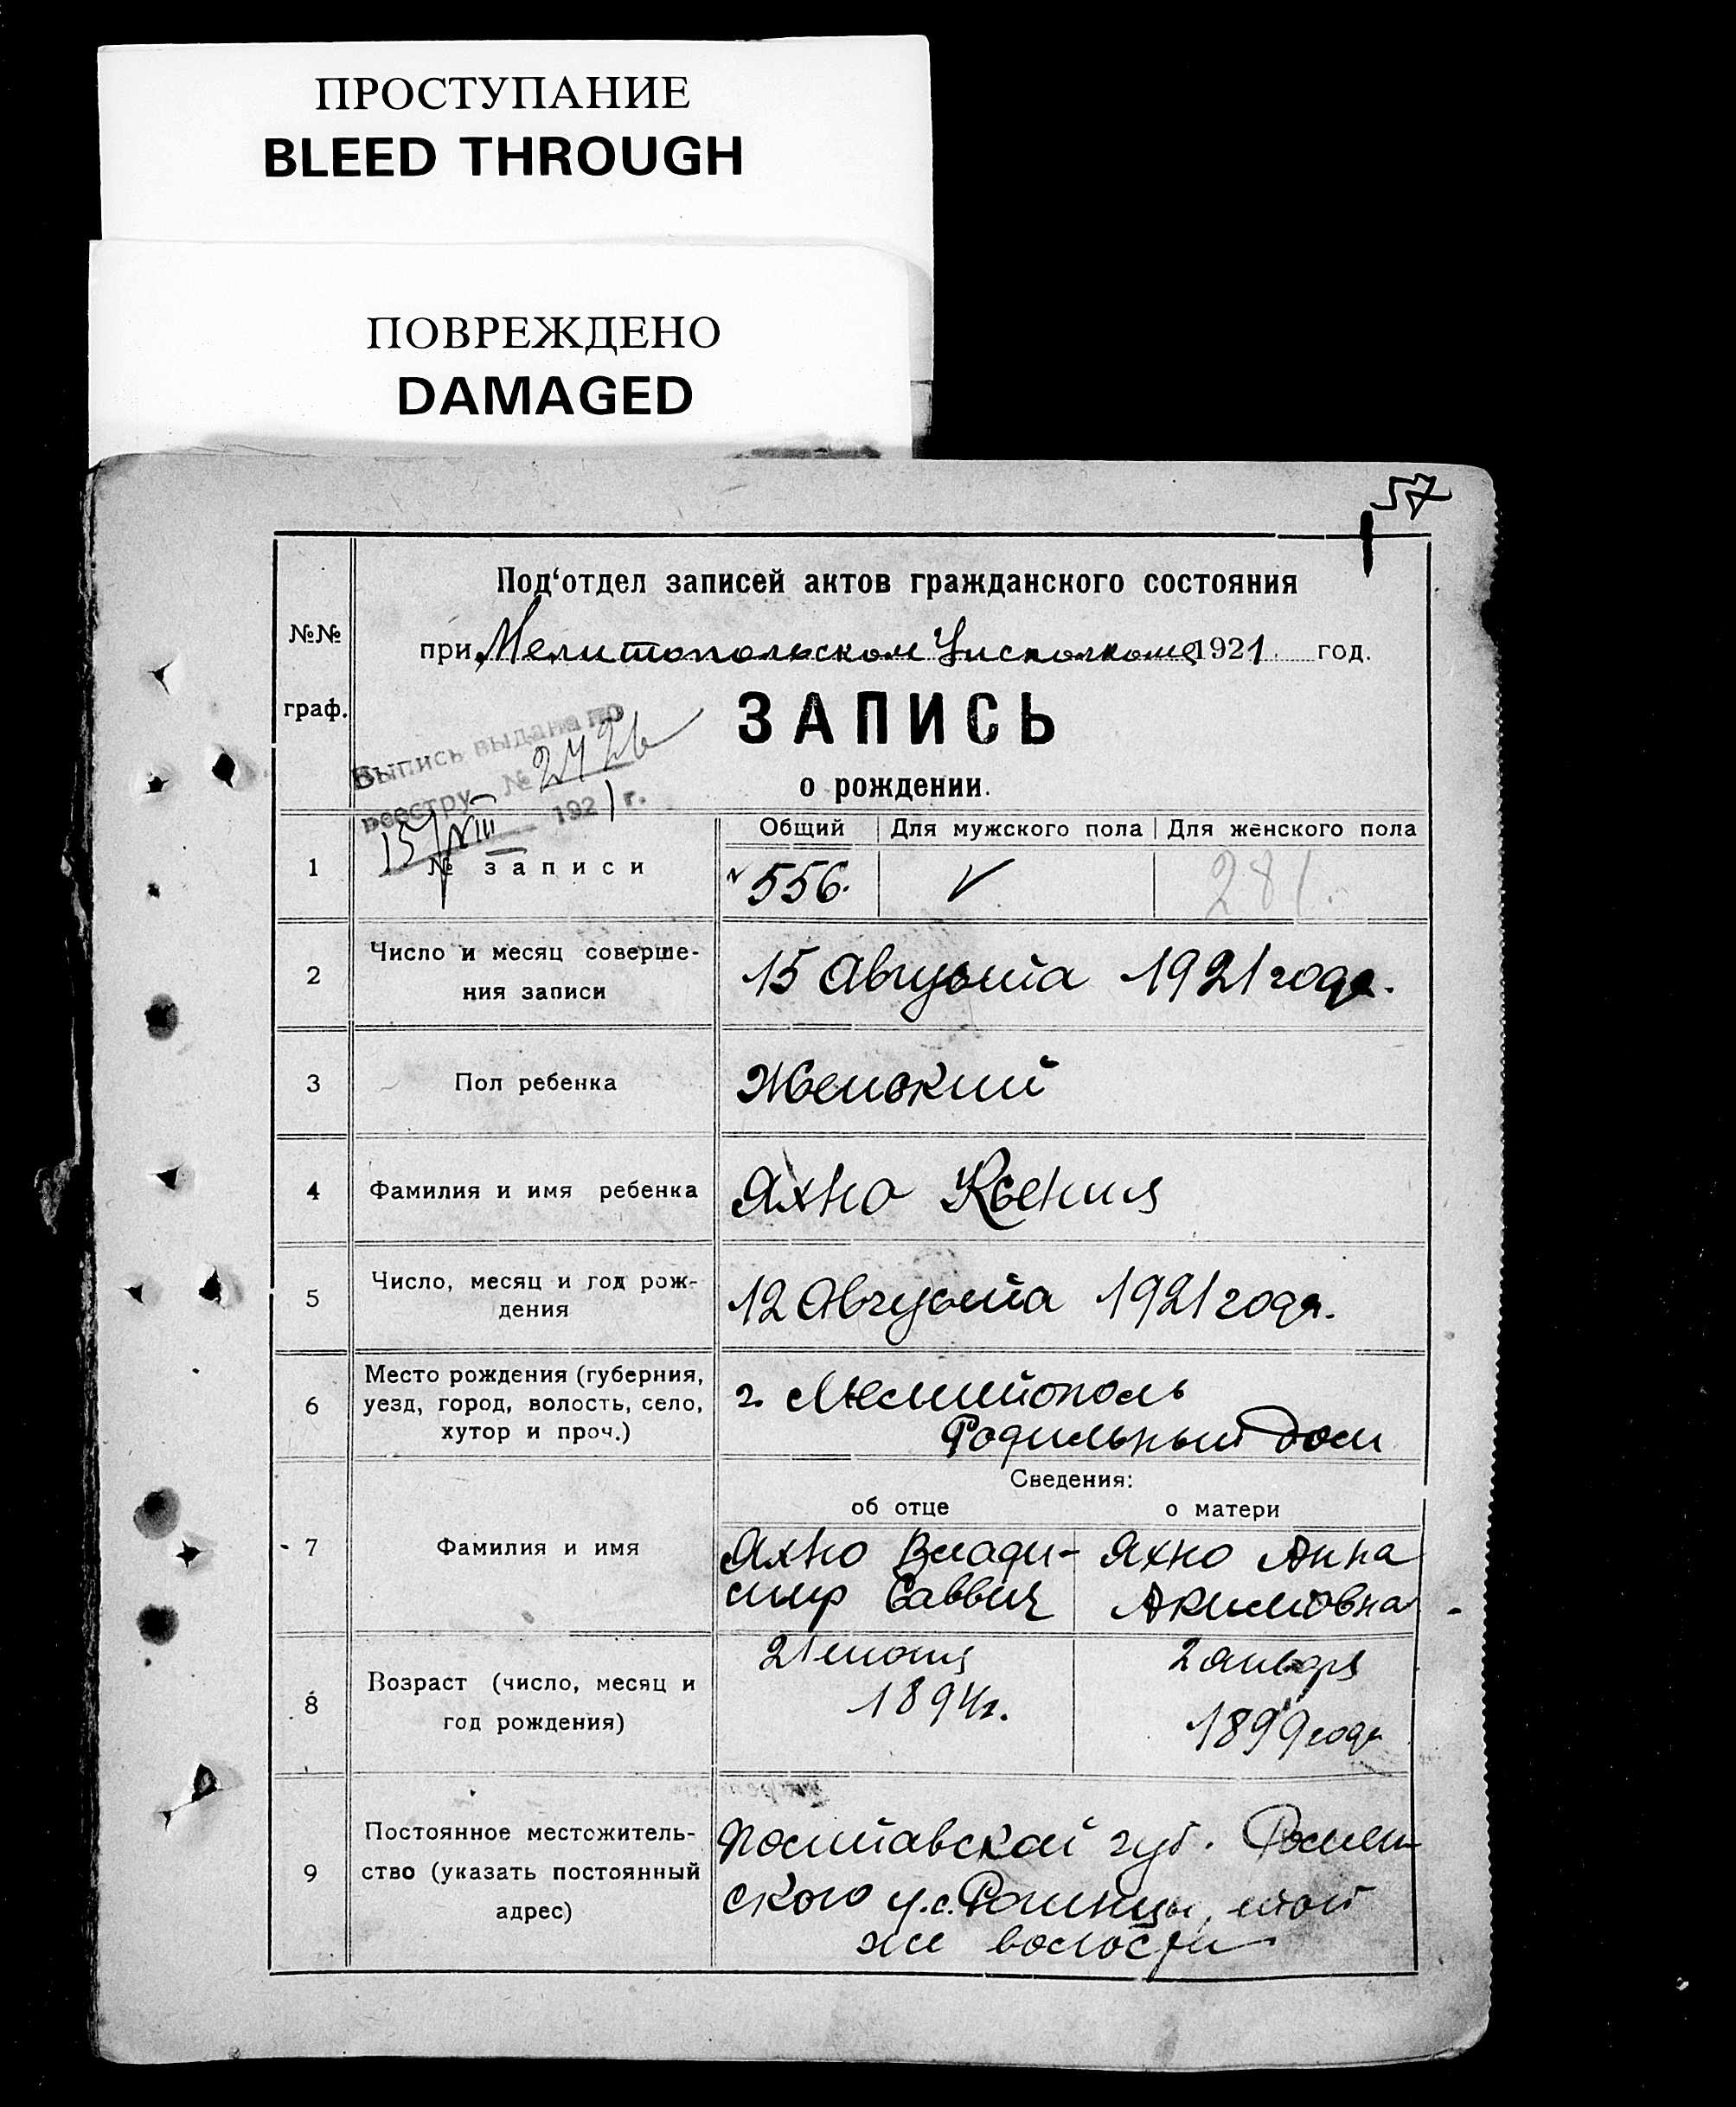 ПРОСТУПАНИЕ
BLEED THROUGH
ПОВРЕЖДЕНО
DAMAGED
57
Под‘отдел записей актов гражданского состояния
№№
при Мелитопольском Уисполкоме 1921 год.
граф.
ЗАПИСЬ
Выпись выдана по
реестру № 2426
15/VIII 1921 г.
о рождении.
Общий Для мужского пола Для женского пола
1 № записи № 556. V 281.
2 Число и месяц соверше-
ния записи
15 Августа 1921 года.
3 Пол ребенка Женский
4 Фамилия и имя ребенка Яхно Ксения
5 Число, месяц и год рож-
дения
12 Августа 1921 года.
6 Место рождения (губерния,
уезд, город, волость, село,
хутор и проч.)
г. Мелитополь
Родильный дом
Сведения:
об отце о матери
7 Фамилия и имя
Яхно Влади-
мир Саввич
Яхно Анна
Акимовна
8 Возраст (число, месяц и
год рождения)
21 июня
1894 г.
2 января
1899 года
9 Постоянное местожитель-
ство (указать постоянный
адрес)
Полтавской губ. Ромен-
ского у. с. той
же волости